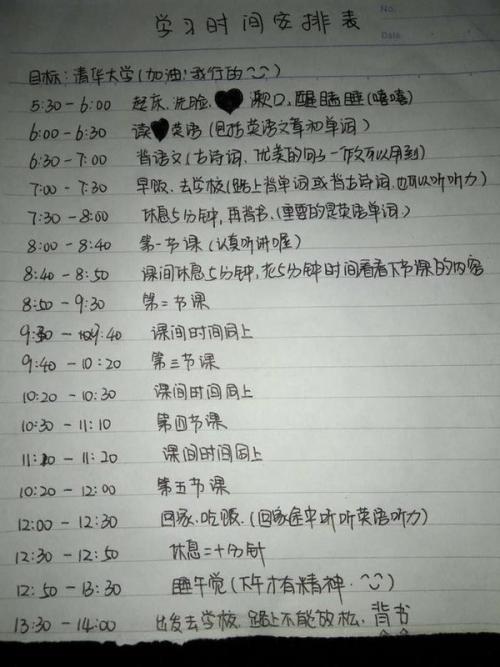 No.
Date.
学习时间安排表
目标:清华大学(加油!我行的)
5:30-6:00 起床、洗脸、漱口、醒瞌睡(嘻嘻)
6:00-6:30 读英语(包括英语文章和单词)
6:30-7:00 背语文(古诗词、优美的句子 作文可以用到)
7:00-7:30 早饭、去学校(路上背单词或背古诗词、也可以听听力)
7:30-8:00 休息5分钟,再背书.(重要的是英语单词.)
8:00-8:40 第一节课(认真听讲喔)
8:40-8:50 课间休息5分钟,花5分钟时间看看下节课的内容
8:50-9:30 第二节课
9:30-9:40 课间时间同上
9:40-10:20 第三节课
10:20-10:30 课间时间同上
10:30-11:10 第四节课
11:10-11:20 课间时间同上
10:20-12:00 第五节课
12:00-12:30 回家、吃饭、(回家途中听听英语听力)
12:30-12:50 休息二十分针
12:50-13:30 睡午觉(下午才有精神.)
13:30-14:00 出发去学校、路上不能放松、背书